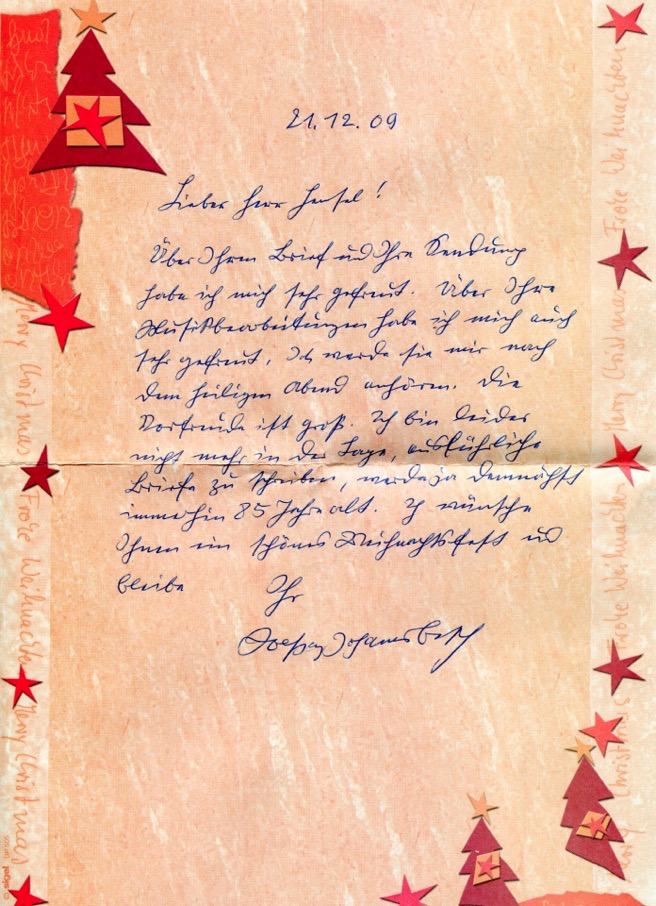 21.12.09
Lieber Herr Hensel!
Über Ihren Brief und Ihre Sendung
habe ich mich sehr gefreut. Über Ihre
Musikbearbeitungen habe ich mich auch
sehr gefreut, Ich werde sie mir nach
dem heiligen Abend anhören. Die
Vorfreude ist groß. Ich bin leider
nicht mehr in der Lage, ausführliche
Briefe zu schreiben, werde ja demnächst
immerhin 85 Jahre alt. Ich wünsche
Ihnen ein schönes Weihnachtsfest und
bleibe Ihr
Merry Christmas
Frohe Weihnachten
Merry Christmas
Frohe Weihnachten
Merry Christmas
Frohe Weihnachten
Christmas
sigel